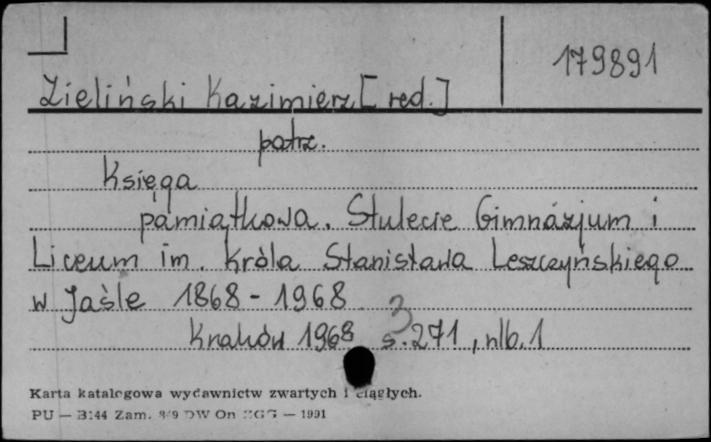 179891
Zieliński Kazimierz [red.]
patrz.
Księga
pamiątkowa. Stulecie Gimnazjum i
Liceum im. Króla Stanisława Leszczyńskiego
w Jaśle 1868 - 1968
3
Kraków 1968 s. 271, nlb. 1
Karta katalogowa wydawnictw zwartych i ciągłych.
PU — B144 Zam. DW On — 1991